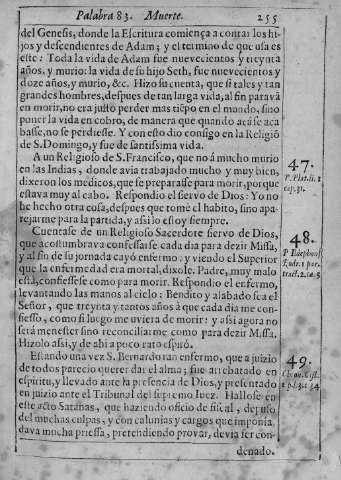 Palabra 83. Muerte. 255
del Genesis, donde la Escritura comiença a contar los hi-
jos y descendientes de Adam; y el termino de que usa es
este: Toda la vida de Adam fue nuevecientos y treynta
años, y murio: la vida de su hijo Seth, fue nuevecientos y
doze años, y murio, &c. Hizo su cuenta, que si tales y tan
grandes hombres, despues de tan larga vida, al fin paravā
en morir, no era justo perder mas tiēpo en el mundo, sino
poner la vida en cobro, de manera que quando acà se aca
basse, no se perdiesse. Y con esto dio consigo en la Religiō
de S. Domingo, y fue de santissima vida.
A un Religioso de S. Francisco, que no à mucho murio
en las Indias, donde avia trabajado mucho y muy bien,
dixeron los medicos, que se preparasse para morir, porque
estava muy al cabo. Respondio el siervo de Dios: Yo no
he hecho otra cosa, despues que tomè el habito, sino apa-
rejarme para la partida, y assi lo estoy siempre.
47.
P. Plat. li. 1
cap. 31.
Cuentase de un Religioso Sacerdote siervo de Dios,
que acostumbrava confessarse cada dia para dezir Missa,
y al fin de su jornada cayò enfermo: y viendo el Superior
que la enfermedad era mortal, dixole. Padre, muy malo
està, confiessese como para morir. Respondio el enfermo,
levantando las manos al cielo: Bendito y alabado sea el
Señor, que treynta y tantos años à que cada dia me con-
fiesso, como si luego me uviera de morir: y assi agora no
serà menester sino reconciliarme como para dezir Missa.
Hizolo assi, y de ahi a poco rato espirò.
48.
P. Ildephons.
Rodr. 1 par.
tract. 2. ca. 5
Estando una vez S. Bernardo tan enfermo, que a juizio
de todos parecio querer dar el alma; fue arrebatado en
espiritu, y llevado ante la presencia de Dios, y presentado
en juizio ante el Tribunal del supremo Iuez. Hallose en
este acto Satanas, que haziendo oficio de fiscal, depuso
del muchas culpas, y con calunias y cargos que imponia,
dava mucha priessa, pretendiendo provar, devia ser con-
49.
denado.